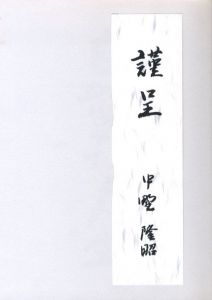 謹呈
中野 隆昭